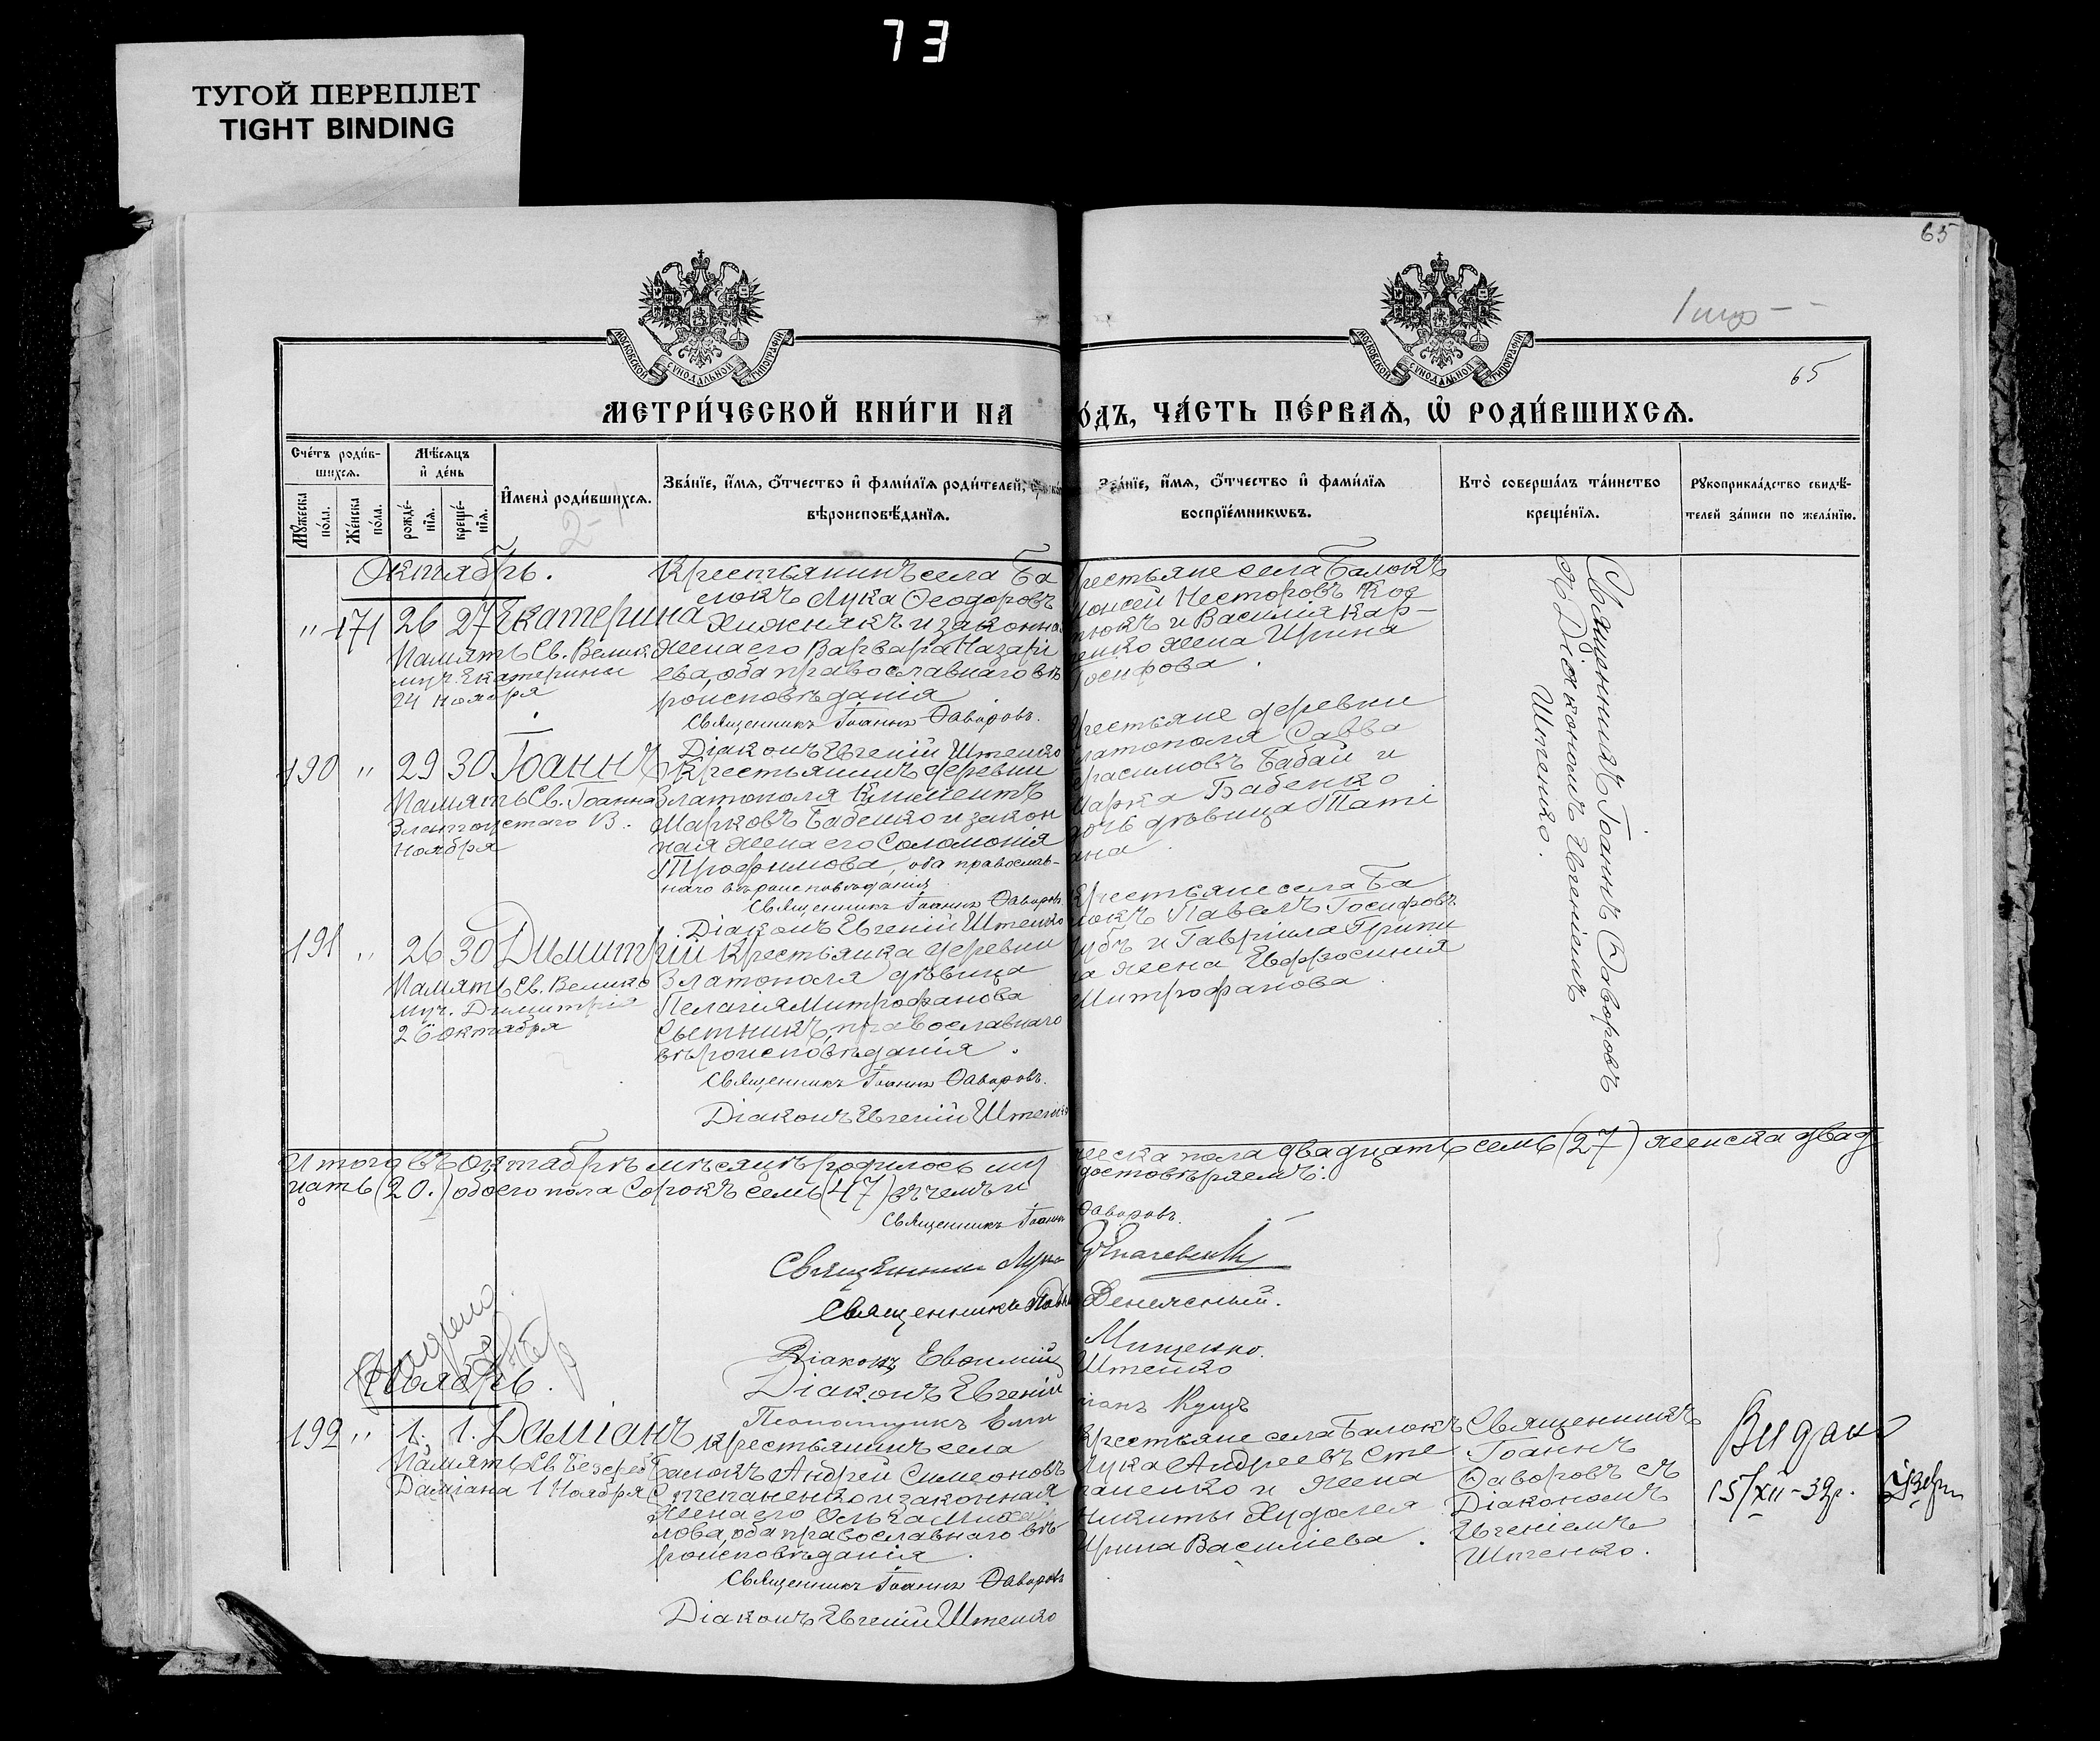 73
ТУГОЙ ПЕРЕПЛЕТ
TIGHT BINDING
65
65
МОСКОВСКОЙ СѴНОДАЛЬНОЙ ТИПОГРАФІИ
МОСКОВСКОЙ СѴНОДАЛЬНОЙ ТИПОГРАФІИ
МЕТРИ́ЧЕСКОЙ КНИ́ГИ НА
О́ДЪ, ЧА́СТЬ ПЕ́РВАѦ, Ѡ҆ РОДИ́ВШИХСѦ.
Сче́тъ роди́в-
шихсѧ.
Мꙋ́жеска по́ла.
Же́нска по́ла.
Мѣ́сѧцъ
и҆ де́нь
рожде́-нїѧ.
креще́-нїѧ.
И҆мена̀ роди́вшихсѧ.
Зва́нїе, и҆́мѧ, ѻ҆́тчество и҆ фами́лїѧ роди́телей,
вѣроисповѣ́данїѧ.
Зва́нїе, и҆́мѧ, ѻ҆́тчество и҆ фами́лїѧ
воспрїе́мникѡвъ.
Кто̀ соверша́лъ та́инство
креще́нїѧ.
Рꙋкоприкла́дство свидѣ́-
телей за́писи по жела́нїю.
Октябрь.
" 171 26 27 Екатерина
Память Св. Велик
муч. Екатерины
24 Ноября
Крестьянинъ села Ба
локъ Лука Ѳеодоровъ
Хижнякъ и законна
жена его Варвара Назарі
ева, оба православнаго вѣ
роисповѣданія
Священникъ Іоаннъ Ѳаворовъ.
Діаконъ Евгеній Штенко
рестьяне села Балокъ
Моисей Несторовъ Ков
тюкъ и Василія Кар-
пенко жена Ирина
Іосифова.
190 " 29 30 Іоаннъ
Память Св. Іоанна
Златоустаго 13.
Ноября
Крестьянинъ деревни
Златополя Климентъ
Марковъ Бабенко и закон
ная жена его Соломонія
Трофимова, оба православ-
наго вѣроисповѣданія
Священникъ Іоаннъ Ѳаворовъ
Діаконъ Евгеній Штенко
рестьяне деревни
Златополя Савва
Герасимовъ Бабай и
Марка Бабенко
дочь дѣвица Таті
ана
191 " 26 30 Димитрій
Память Св. Велико
муч. Димитрія
26 Октября
Крестьянка деревни
Златополя дѣвица
Пелагія Митрофанова
Сытникъ, православнаго
вѣроисповѣданія.
Священникъ Іоаннъ Ѳаворовъ.
Діаконъ Евгеній Штенко
Крестьяне села Ба
локъ Павелъ Іосифовъ
и Гавріила
жена Евфросинія
Митрофанова
Священникъ Іоаннъ Ѳаворовъ
съ Діакономъ Евгеніемъ
Штенко.
Итого въ Октябрѣ мѣсяцѣ родилось му
жеска пола двадцать семь (27) женска двад
цать (20.) обоего пола сорокъ семь (47) въ чемъ и
достовѣряемъ:
Священникъ Іоаннъ Ѳаворовъ.
Священникъ Лука
Священникъ
Діаконъ Евѳимій Мищенко.
Діаконъ Евгеній Штенко
Псаломщикъ Куцъ
Ноябрь.
192 " 1. 1. Даміанъ
Память Св. Безсреб
Даміана 1 Ноября
Крестьянинъ села
Балокъ Андрей Симеоновъ
Степаненко и законная
жена его Ольга Михаи
лова, оба православнаго вѣ
роисповѣданія.
Священникъ Іоаннъ Ѳаворовъ
Діаконъ Евгеній Штенко
Крестьяне села Балокъ
Лука Андреевъ Сте
паненко и жена
Никиты Худолея
Ирина Василіева.
Священникъ
Іоаннъ
Ѳаворовъ съ
Діакономъ
Евгеніемъ
Штенко.
Видан
15/XII-39р.